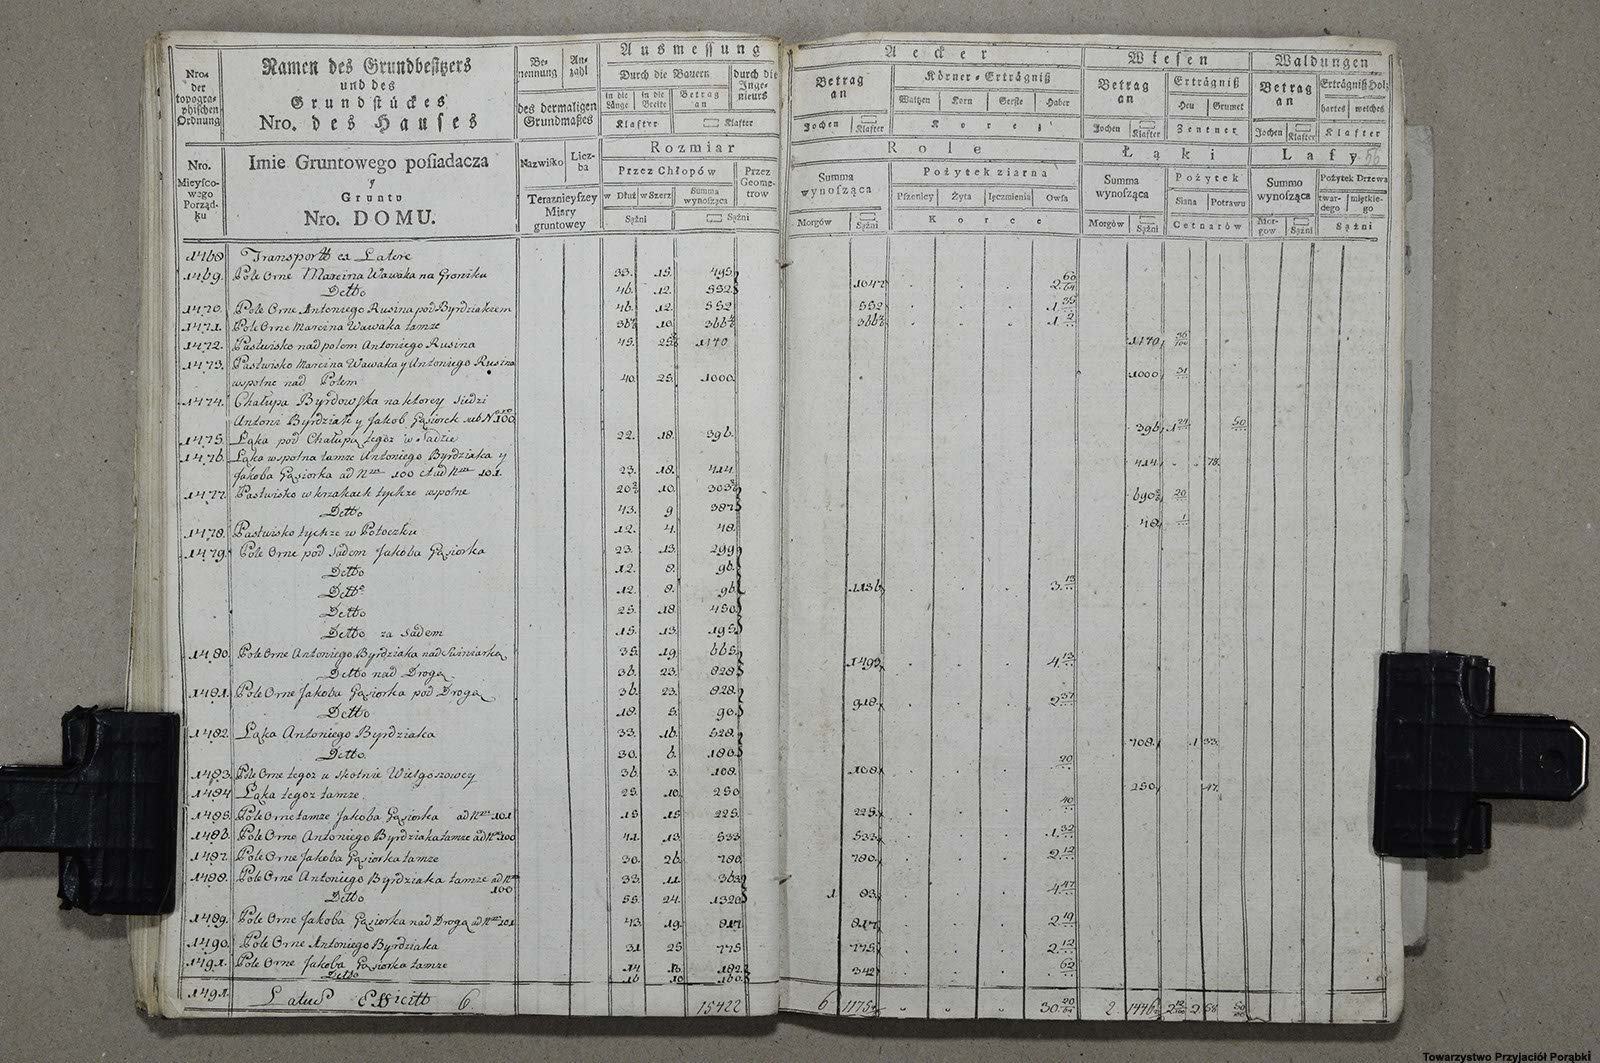 Nro.
der
topogra-
phischen
Ordnung
Namen des Grundbesitzers
und des
Grundstückes
Nro. des Hauses
Be-
nennung
An-
zahl
des dermaligen
Grundmaßes
Ausmessung
Durch die Bauern
durch die
Inge-
nieurs
in die
Länge
in die
Breite
Betrag
an
Klafter
Klafter
Aecker
Betrag
an
Körner-Erträgniß
Waitzen Korn Gerste Haber
Jochen Klafter
Korez
Wiesen
Betrag
an
Erträgniß
Heu Grumet
Jochen Klafter
Zentner
Waldungen
Betrag
an
Erträgniß Holz
hartes weiches
Jochen Klafter
Klafter
Nro.
Mieysco-
wego
Porząd-
ku
Imie Gruntowego posiadacza
y
Gruntu
Nro. DOMU.
Nazwisko
Licz-
ba
Teraznieyszey
Miary
gruntowey
Rozmiar
Przez Chłopów
Przez
Geome-
trow
w Dłuż
w Szerz
Summa
wynosząca
Sążni
Sążni
Role
Summa
wynosząca
Pożytek ziarna
Pszenicy Żyta Jęczmienia Owsa
Morgów Sążni
Korce
Łąki
Summa
wynosząca
Pożytek
Siana Potrawu
Morgów Sążni
Cetnarów
Lasy 56
Summo
wynosząca
Pożytek Drzewa
twar-
dego
miętkie-
go
Mor-
gow
Sążni
Sążni
1468 Transportt ex Latere
1469. Pole Orne Marcina Wawaka na Groniku 33. 15. 495
Detto 46. 12. 552 1047 2. 60/64
1470. Pole Orne Antoniego Rusina pod Byrdziakiem 46. 12. 552 552 1. 35
1471. Pole Orne Marcina Wawaka tamze 10. 1. 2
1472. Pastwisko nad polem Antoniego Rusina 45. 1170 1170
1473. Pastwisko Marcina Wawaka y Antoniego Rusina
wspolne nad Polem 40. 25. 1000. 1000 31
1474. Chałupa Byrdowska na ktorey siedzi
Antoni Byrdziak y Jakob Gąsiorek sub Nro 100
1475. Łąka pod Chałupą tegoz w Sadzie 22. 18. 396. 396 50
1476. Łąka wspolna tamze Antoniego Byrdziaka y
Jakoba Gąsiorka ad Nrum 100 et ad Nrum 101. 23. 18. 414. 414 78.
1477. Pastwisko w krzakach tychze wspolne 10. 20
Detto 43. 9 387
1478. Pastwisko tychze w Potoczku 12. 4. 48. 48 1
1479. Pole Orne pod Sadem Jakoba Gąsiorka 23. 13. 299
Detto 12. 8. 96.
Detto 12. 8. 96 1136 3. 13
Detto 25. 18. 450
Detto za Sadem 15. 13. 195
1480. Pole Orne Antoniego Byrdziaka 35. 19. 665
Detto nad Drogą 36. 23. 828 1493 4. 13
1481. Pole Orne Jakoba Gąsiorka pod Drogą 36. 23. 828.
Detto 18. 5. 90. 918. 2. 37
1482. Łąka Antoniego Byrdziaka 33. 16. 528. 708. 1 33.
Detto 30. 6. 180
1483. Pole Orne tegoz u 36. 3. 108. 108. 20
1484 Łąka tegoz tamze 25. 10. 250 250 47.
1485. Pole Orne tamze Jakoba Gąsiorka ad Nrum 101 15 15 225. 225. 40
1486. Pole Orne Antoniego Byrdziaka tamze ad Nrum 100 41. 13 533 533. 1. 32
1487. Pole Orne Jakoba Gąsiorka tamze 30. 26. 780. 780. 2. 12
1488. Pole Orne Antoniego Byrdziaka tamze ad Nrum
100 33. 11. 363
Detto 55. 24. 1320 1 83. 4. 47
1489. Pole Orne Jakoba Gąsiorka nad Drogą ad Nrum 101 43. 19. 817 817. 2. 19
1490. Pole Orne Antoniego Byrdziaka 31. 25 775 775. 2. 12
1491. Pole Orne Jakoba Gąsiorka tamze 14 13. 182. 342 62
Detto 16 10 160
1491. Latus Efficitt 6 15422 6 30. 20/64 2. 1446 50
Towarzystwo Przyjaciół Porąbki